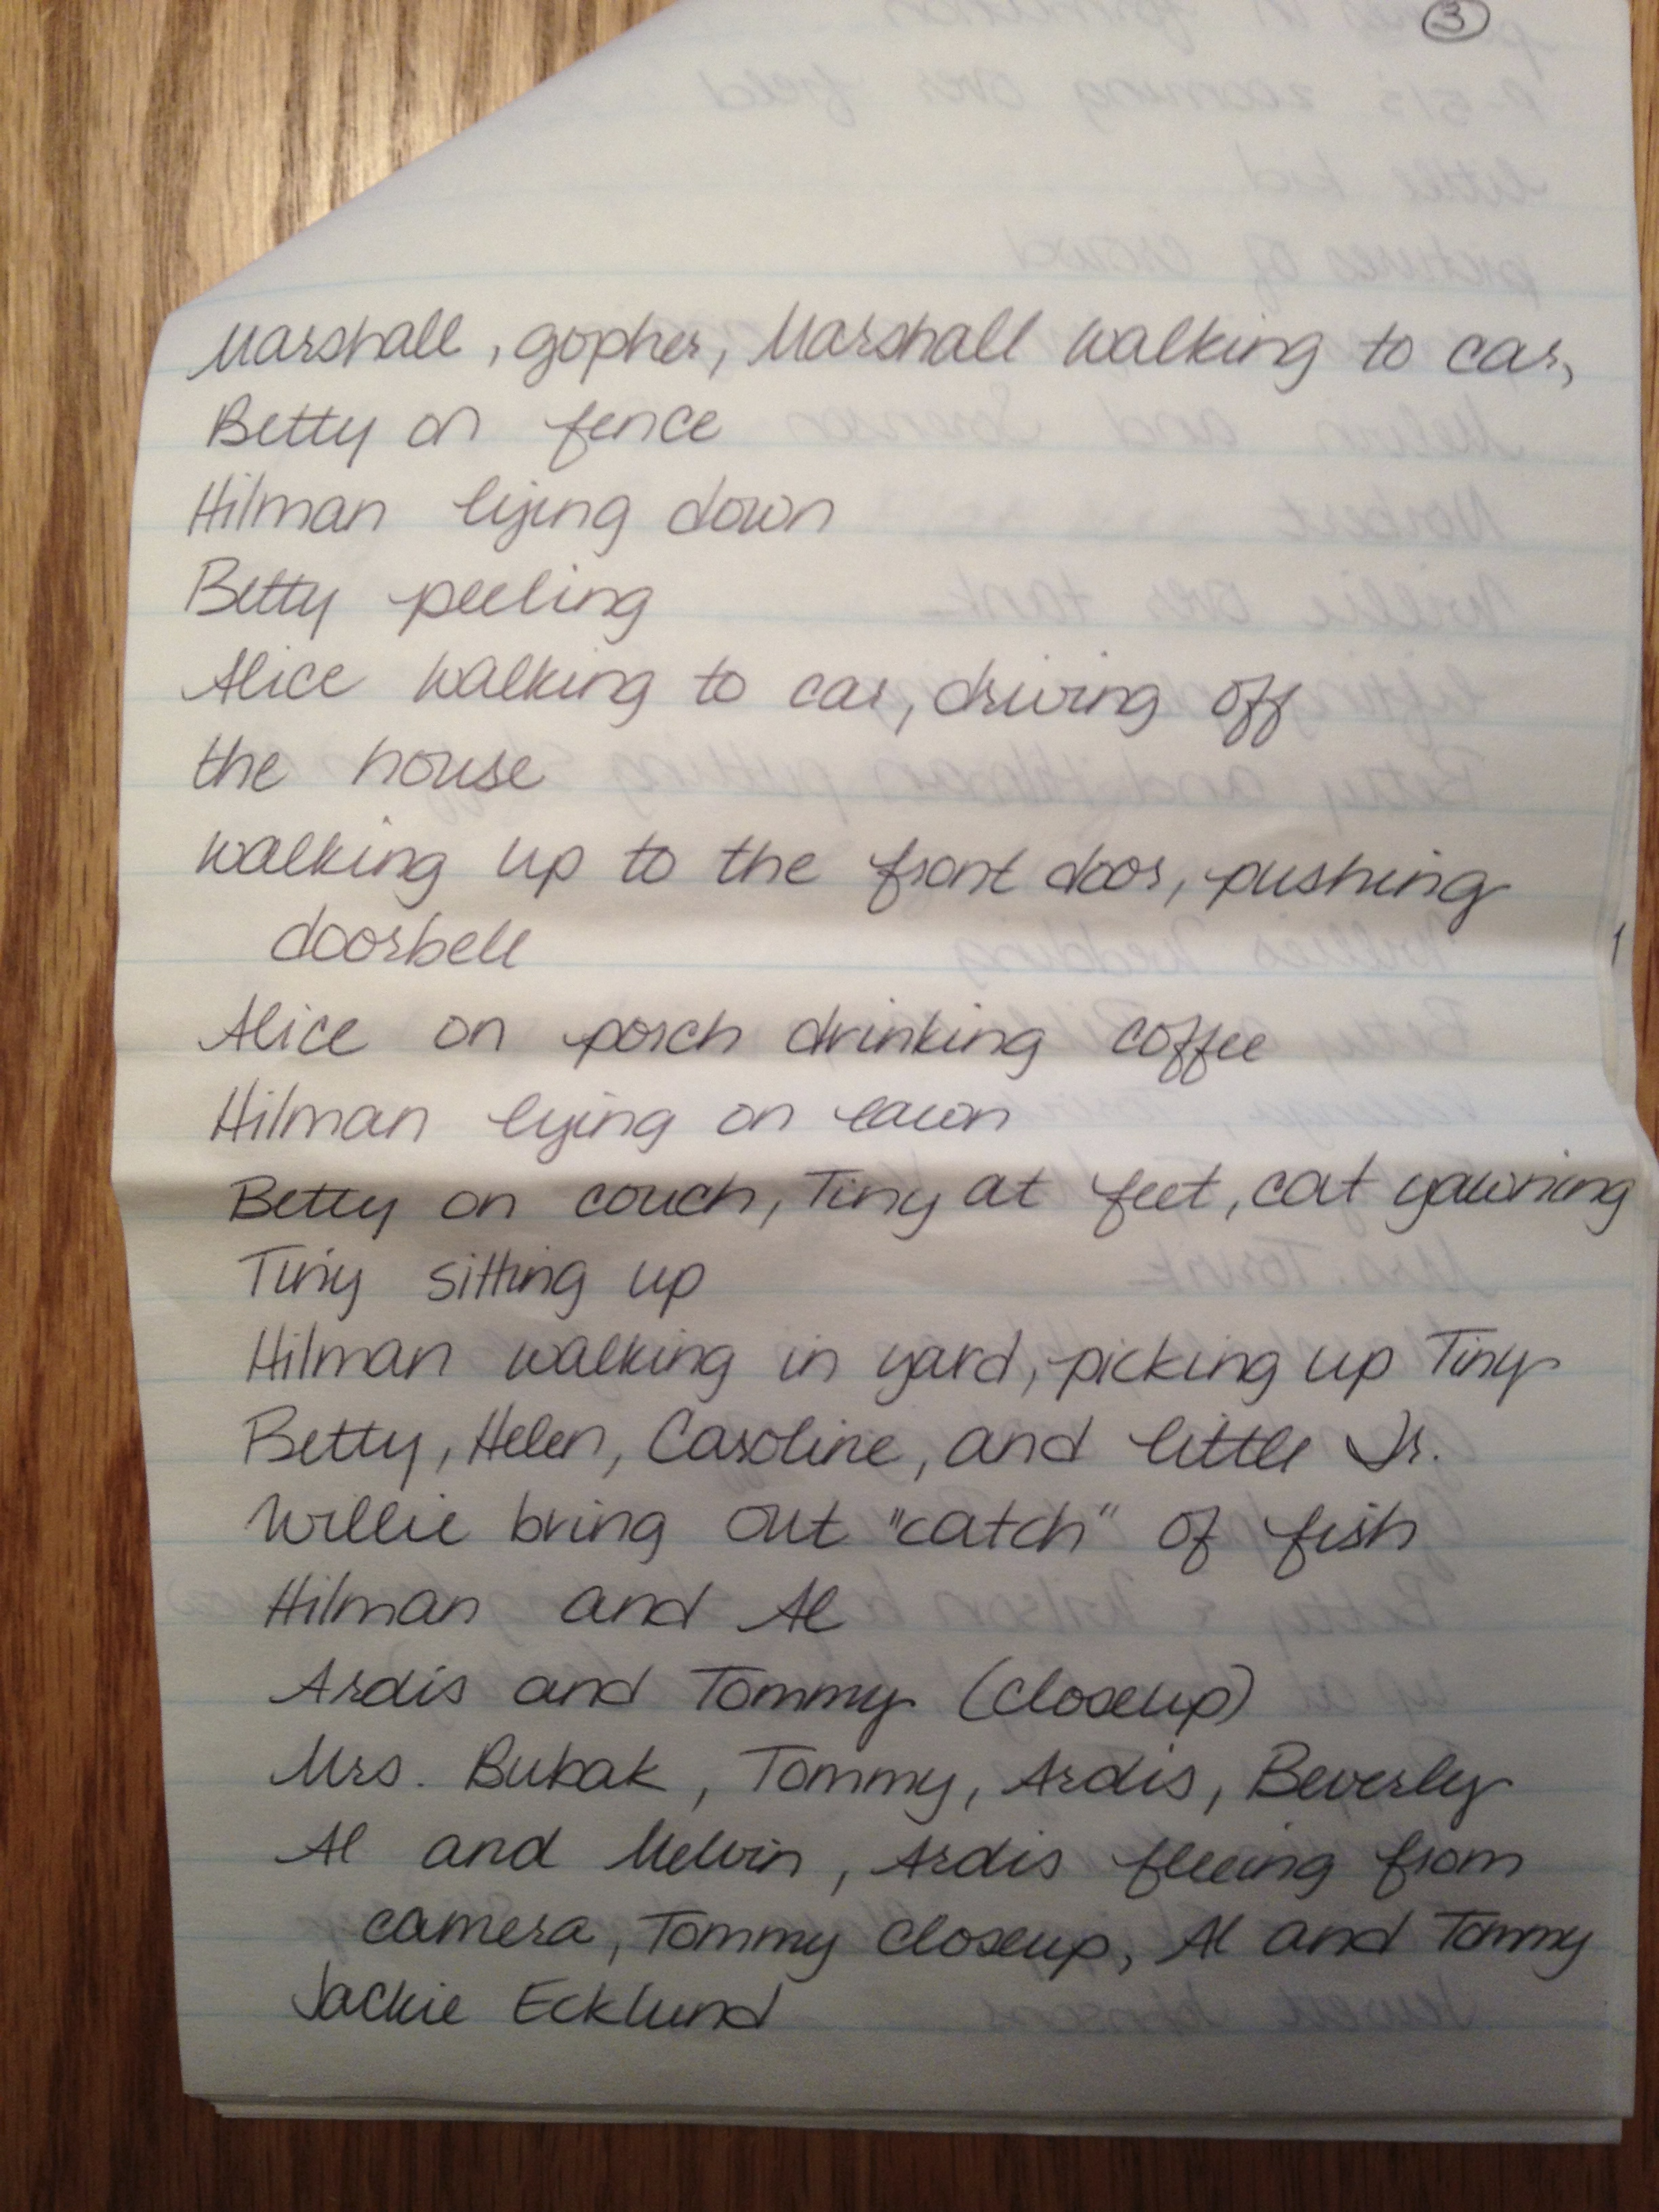 3
Marshall, gopher, Marshall walking to car,
Betty on fence
Hilman lying down
Betty peeling
Alice walking to car, driving off
the house
walking up to the front door, pushing
doorbell
Alice on porch drinking coffee
Hilman lying on lawn
Betty on couch, Tiny at feet, cat yawning
Tiny sitting up
Hilman walking in yard, picking up Tiny
Betty, Helen, Caroline, and little Jr.
Willie bring out "catch" of fish
Hilman and Al
Ardis and Tommy (closeup)
Mrs. Bubak, Tommy, Ardis, Beverly
Al and Melvin, Ardis fleeing from
camera, Tommy closeup, Al and Tommy
Jackie Ecklund